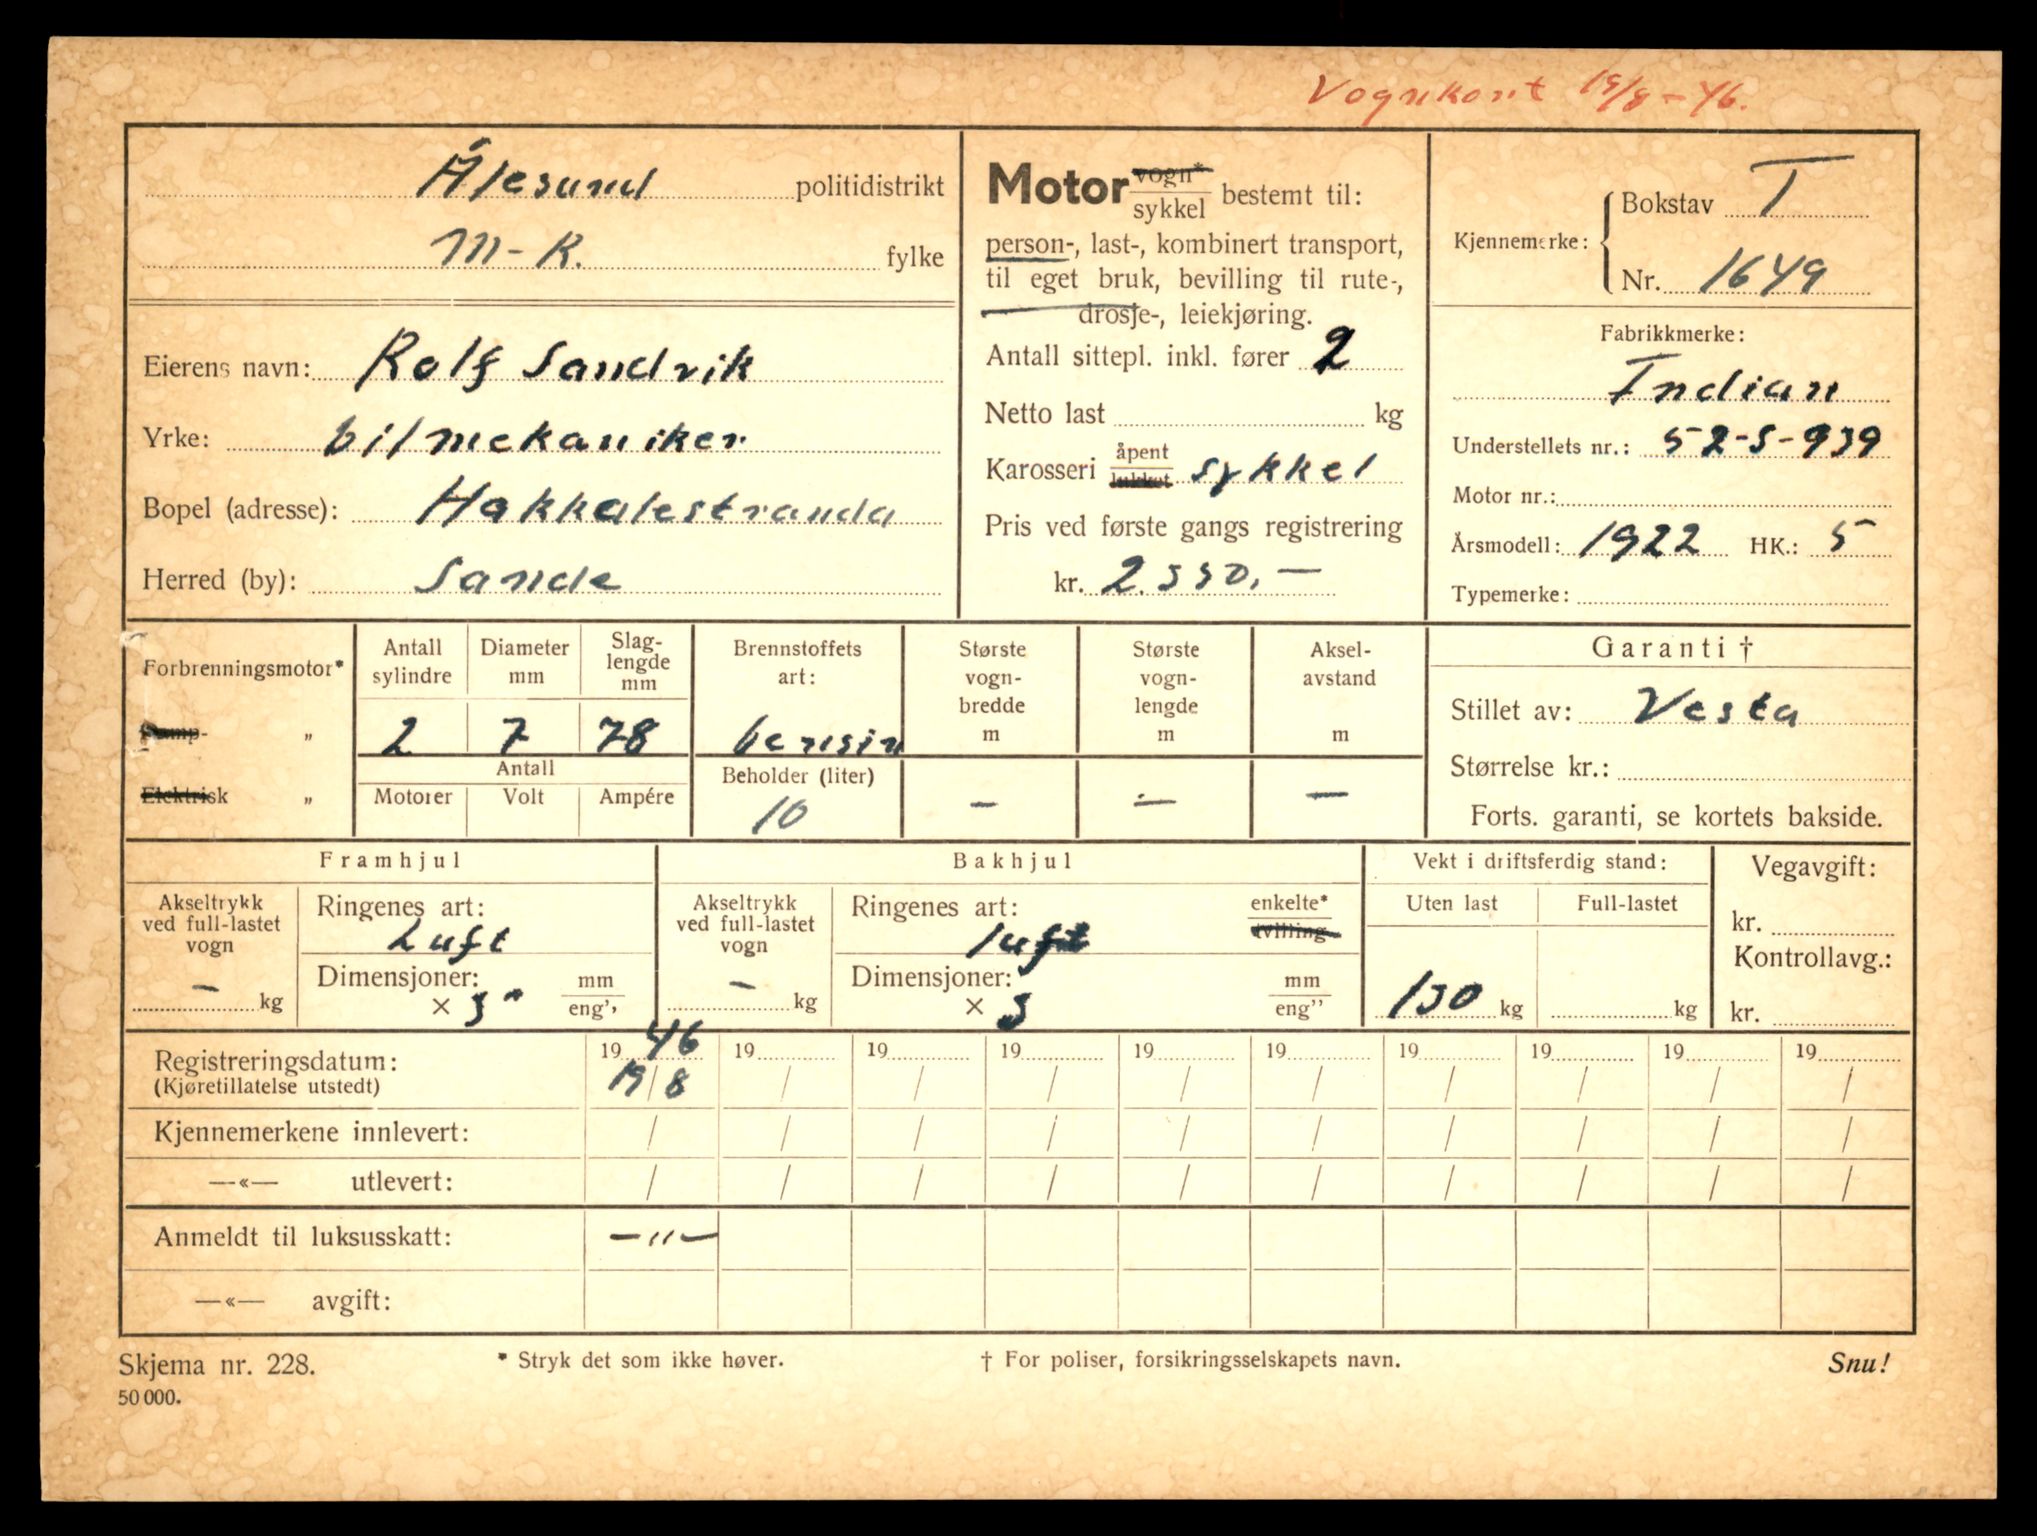 Vognkont 19/8-46.
Ålesund politidistrikt
M-R. fylke
Eierens navn: Rolf Sandvik
Yrke: bilmekaniker
Bopel (adresse): Hakkalestranda
Herred (by): Sande
Motor vogn* sykkel bestemt til:
person-, last-, kombinert transport,
til eget bruk, bevilling til rute-,
drosje-, leiekjøring.
Antall sittepl. inkl. fører 2
Netto last kg
Karosseri åpent lukket sykkel
Pris ved første gangs registrering
kr.
Kjennemerke: Bokstav T
Nr. 1649
Fabrikkmerke:
Indian
Understellets nr.: 52-S-939
Motor nr.:
Årsmodell: 1922 HK.: 5
Typemerke:
Forbrenningsmotor*
Damp- „
Elektrisk „
Antall sylindre
2
Diameter mm
7
Slag-
lengde
mm
78
Antall
Motorer Volt Ampére
Brennstoffets
art:
bensin
Beholder (liter)
10
Største
vogn-
bredde
m
—
Største
vogn-
lengde
m
—
Aksel-
avstand
m
—
Garanti †
Stillet av: Vesta
Størrelse kr.:
Forts. garanti, se kortets bakside.
Framhjul
Akseltrykk
ved full-lastet
vogn
— kg
Ringenes art:
Luft
Dimensjoner: mm
× 3" eng''
Bakhjul
Akseltrykk
ved full-lastet
vogn
— kg
Ringenes art: enkelte*
luft tvilling
Dimensjoner: mm
× 3 eng''
Vekt i driftsferdig stand:
Uten last Full-lastet
130 kg kg
Vegavgift:
kr.
Kontrollavg.:
kr.
Registreringsdatum: 1946 19 19 19 19 19 19 19 19 19
(Kjøretillatelse utstedt) 19/8 / / / / / / / / /
Kjennemerkene innlevert: / / / / / / / / / /
—«— utlevert: / / / / / / / / / /
Anmeldt til luksusskatt: —"—
—«— avgift:
Skjema nr. 228. * Stryk det som ikke høver. † For poliser, forsikringsselskapets navn. Snu!
50 000.